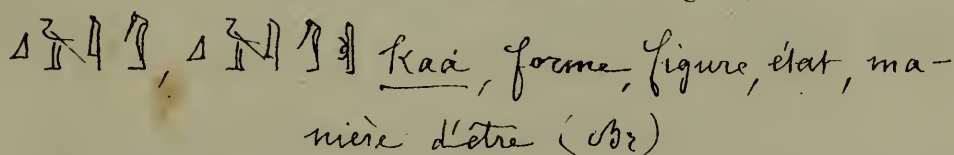 𓈎𓄿𓇋𓀾, kaá, forme, figure, état, ma-
nière d'être (Br)